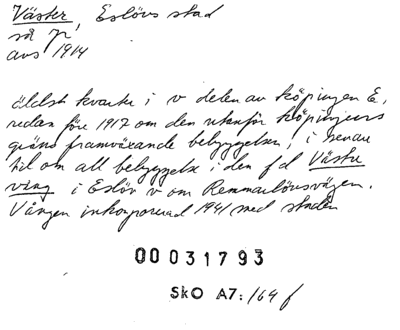 Väster, Eslövs stad
så p!
avs 1914
äldst kvarter i v delen av köpingen E,
redan före 1917 om den utanför köpingens
gräns framväxande bebyggelsen, i senare
tid om all bebyggelse i den f d Västra
vång i Eslöv v om Remmarlövsvägen.
Vången inkorporerad 1941 med staden
00031793
SkO A7:164 f